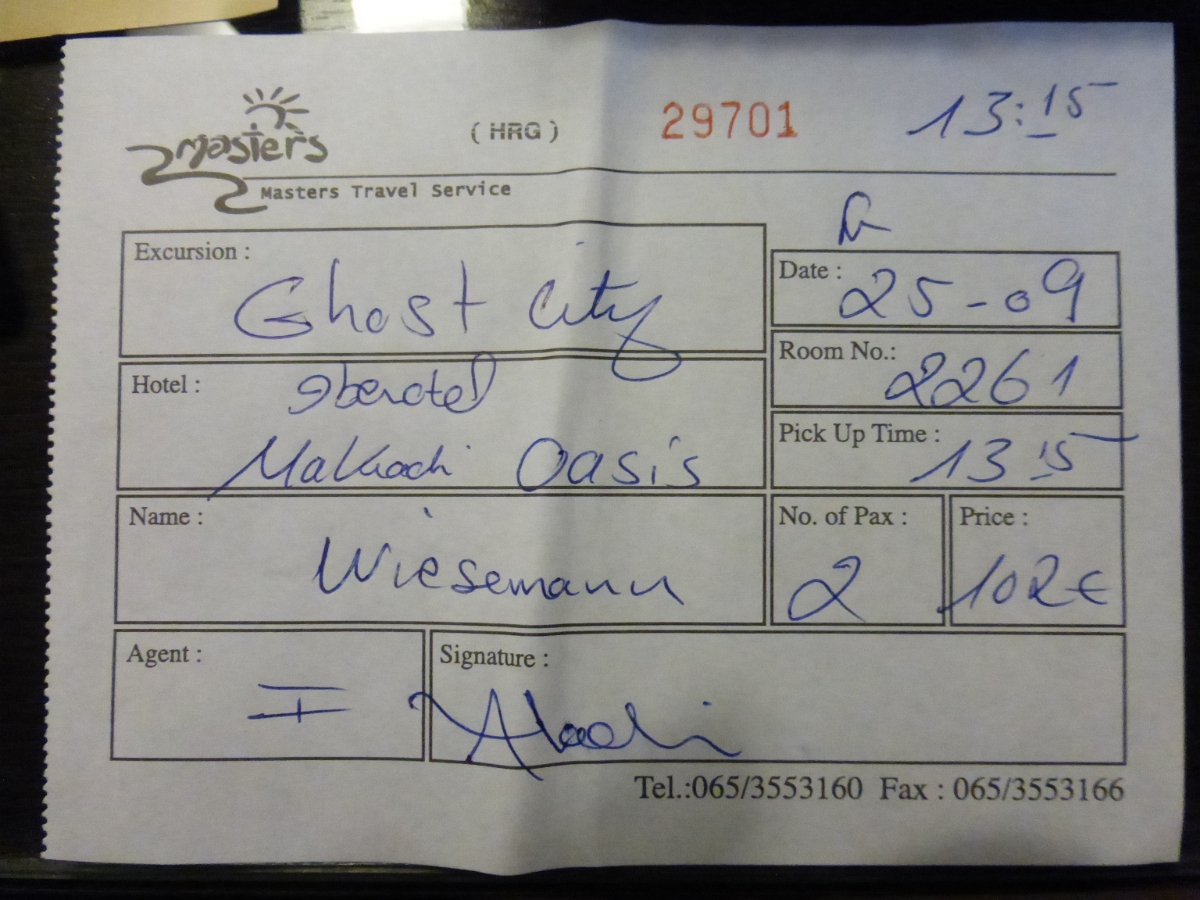 Masters
( HRG )
29701
13:15
Masters Travel Service
Excursion :
Ghost City
Date : 25-09
Hotel : Iberotel
Makadi Oasis
Room No.: 2261
Pick Up Time : 13 15
Name :
Wiesemann
No. of Pax :
2
Price :
102€
Agent :
I
Signature :
Tel.:065/3553160 Fax : 065/3553166